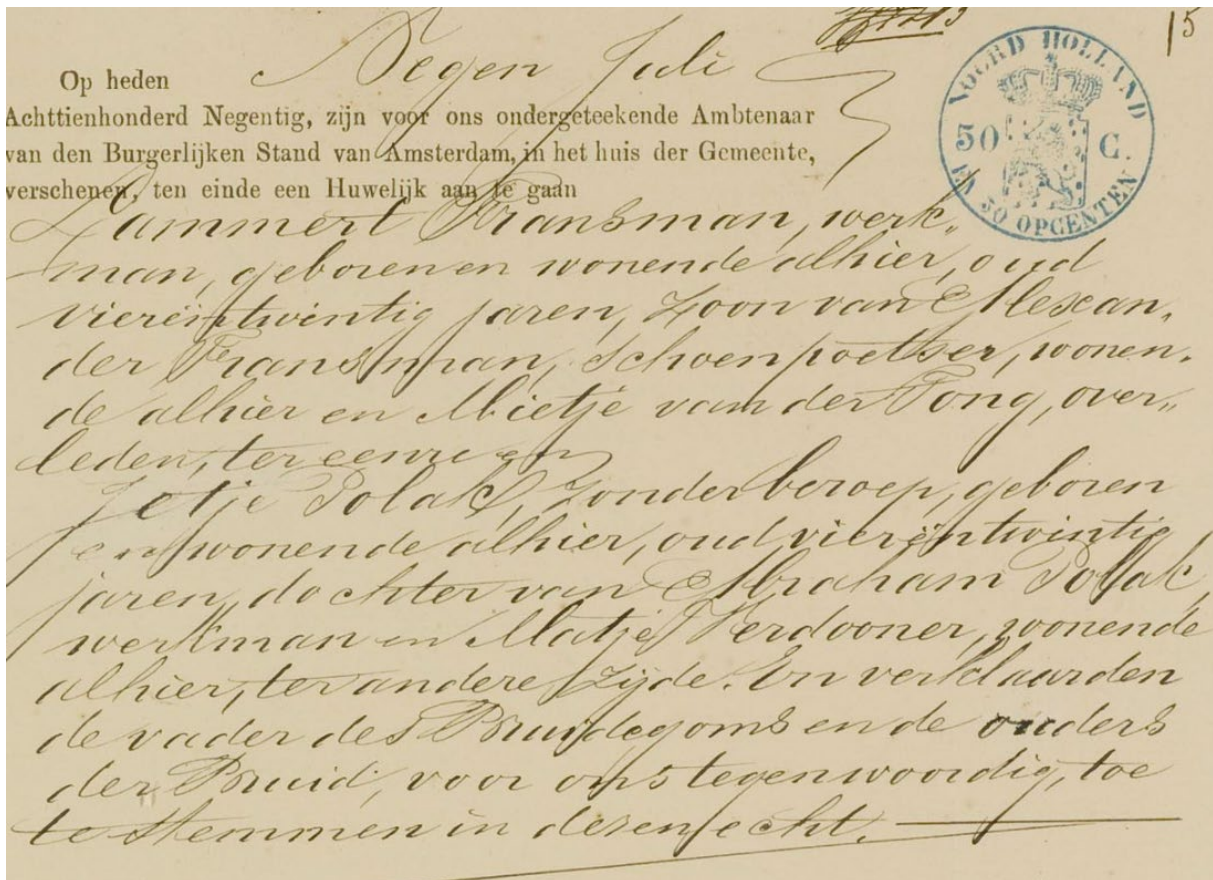 15
Op heden Negen Juli
Achttienhonderd Negentig, zijn voor ons ondergeteekende Ambtenaar
van den Burgerlijken Stand van Amsterdam, in het huis der Gemeente,
verschenen, ten einde een Huwelijk aan te gaan
NOORD HOLLAND
50 C.
EN 50 OPCENTEN
Lammert Fransman, werk„
man, geboren en wonende alhier, oud
vierëntwintig jaren, zoon van Alexan„
der Fransman, schoenpoetser, wonen„
de alhier en Mietje van der Tong, over„
leden, ter eenre en
Jetje Polak, zonder beroep, geboren
en wonende alhier, oud vierëntwintig
jaren, dochter van Abraham Polak,
werkman en Matje Verdooner, wonende
alhier, ter andere zijde. En verklaarden
de vader des Bruidegoms en de ouders
der Bruid, voor ons tegenwoordig, toe
te stemmen in dezen echt.